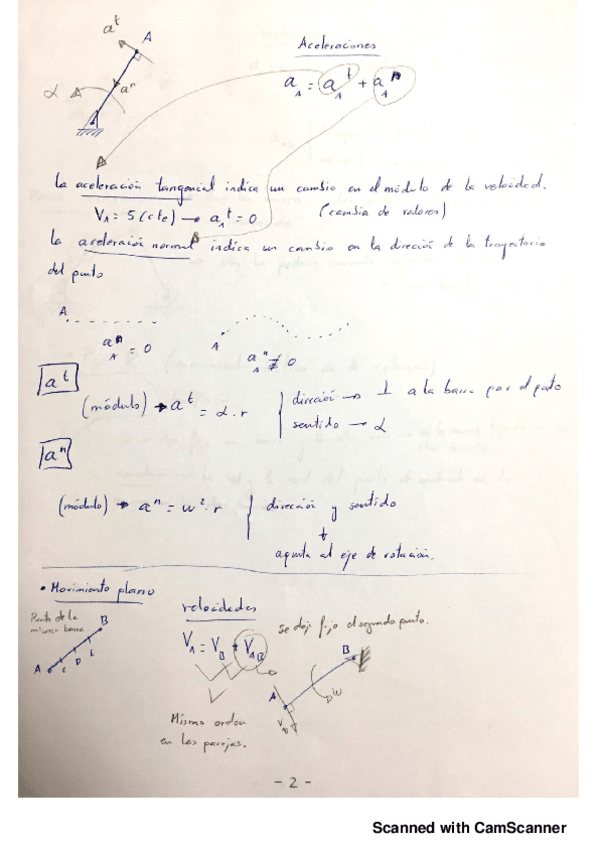 aᵗ
A
aⁿ
α
Aceleraciones
a_A = a_A^t + a_A^n
La aceleración tangencial indica un cambio en el módulo de la velocidad.
V_A = 5 (cte) → a_A^t = 0 (cambia de valores)
la aceleración normal indica un cambio en la direción de la trayectoria
del punto
A
A
a_A^n = 0
a_A^n ≠ 0
aᵗ
(módulo) → aᵗ = α · r
dirección → ⊥ a la barra por el pto
sentido → α
aⁿ
(módulo) → aⁿ = w² · r
dirección y sentido
↓
apunta al eje de rotación.
• Movimiento plano
Punto de la
misma barra
A C D E B
velocidades
V_A = V_B + V_AB
se deja fijo el segundo punto.
Mismo orden
en las parejas.
A
B
w
- 2 -
Scanned with CamScanner